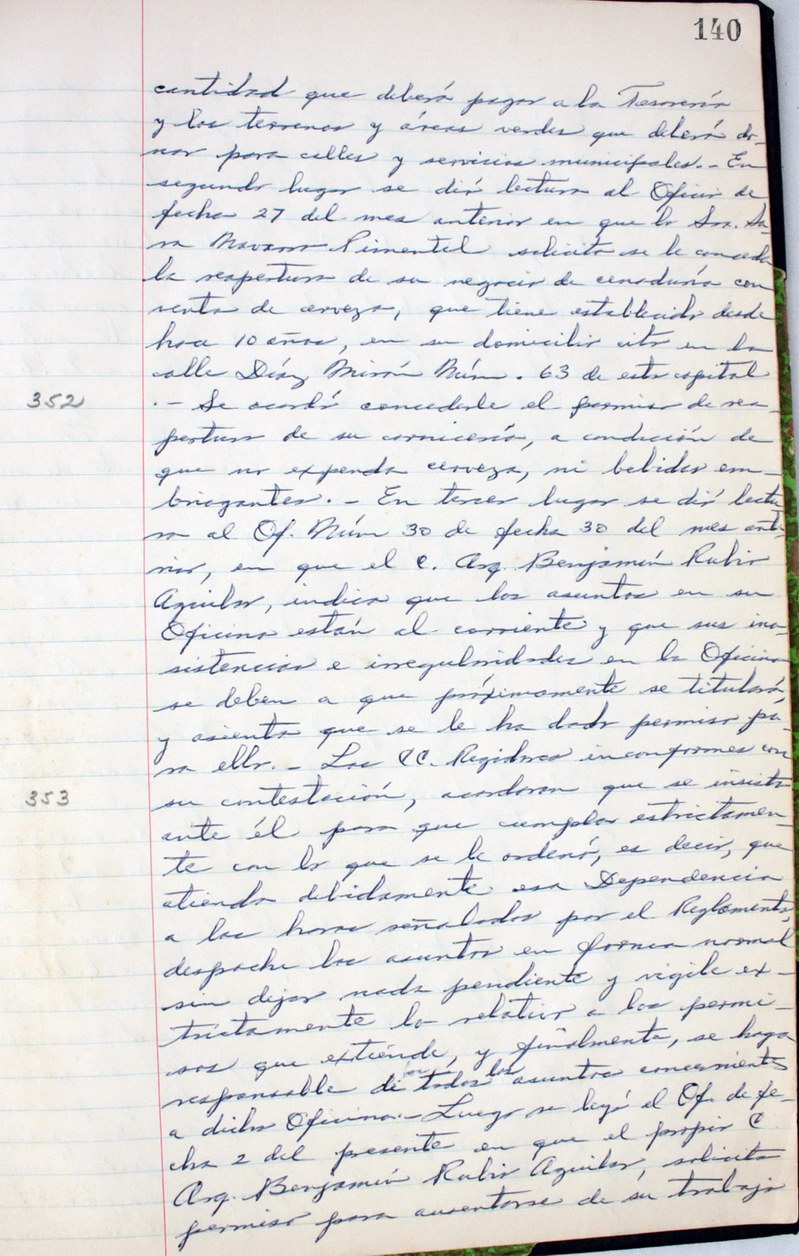 140
cantidad que deberá pagar a la Tesorería
y los terrenos y áreas verdes que deberá do-
nar para calles y servicios municipales.- En
segundo lugar se dió lectura al Oficio de
fecha 27 del mes anterior en que la Sra. Sa-
ra Navarro Pimentel solicita se le conceda
la reapertura de su negocio de cenaduría con
venta de cerveza, que tiene establecido desde
hace 10 años, en su domicilio sito en la
calle Díaz Mirón Núm. 63 de esta capital
352 .- Se acordó concederle el permiso de rea-
pertura de su carnicería, a condición de
que no expenda cerveza, ni bebidas em-
briagantes.- En tercer lugar se dió lectu
ra al Of. Núm 30 de fecha 30 del mes ante
rior, en que el C. Arq. Benjamín Rubio
Aguilar, indica que los asuntos en su
Oficina están al corriente y que sus ina-
sistencias e irregularidades en la Oficina
se deben a que próximamente se titulará,
y asienta que se le ha dado permiso pa-
ra ello.- Los CC. Regidores inconformes con
353 su contestación, acordaron que se insista
ante él para que cumpla estrictamen-
te con lo que se le ordenó, es decir, que
atienda debidamente esa Dependencia
a las horas señaladas por el Reglamento,
despache los asuntos en forma normal
sin dejar nada pendiente y vigile es-
trictamente lo relativo a los permi-
sos que extiende, y finalmente, se haga
responsable de todos los asuntos concernientes
a dicha Oficina.- Luego se leyó el Of. de fe-
cha 2 del presente en que el propio C
Arq. Benjamín Rubio Aguilar, solicita
permiso para ausentarse de su trabajo